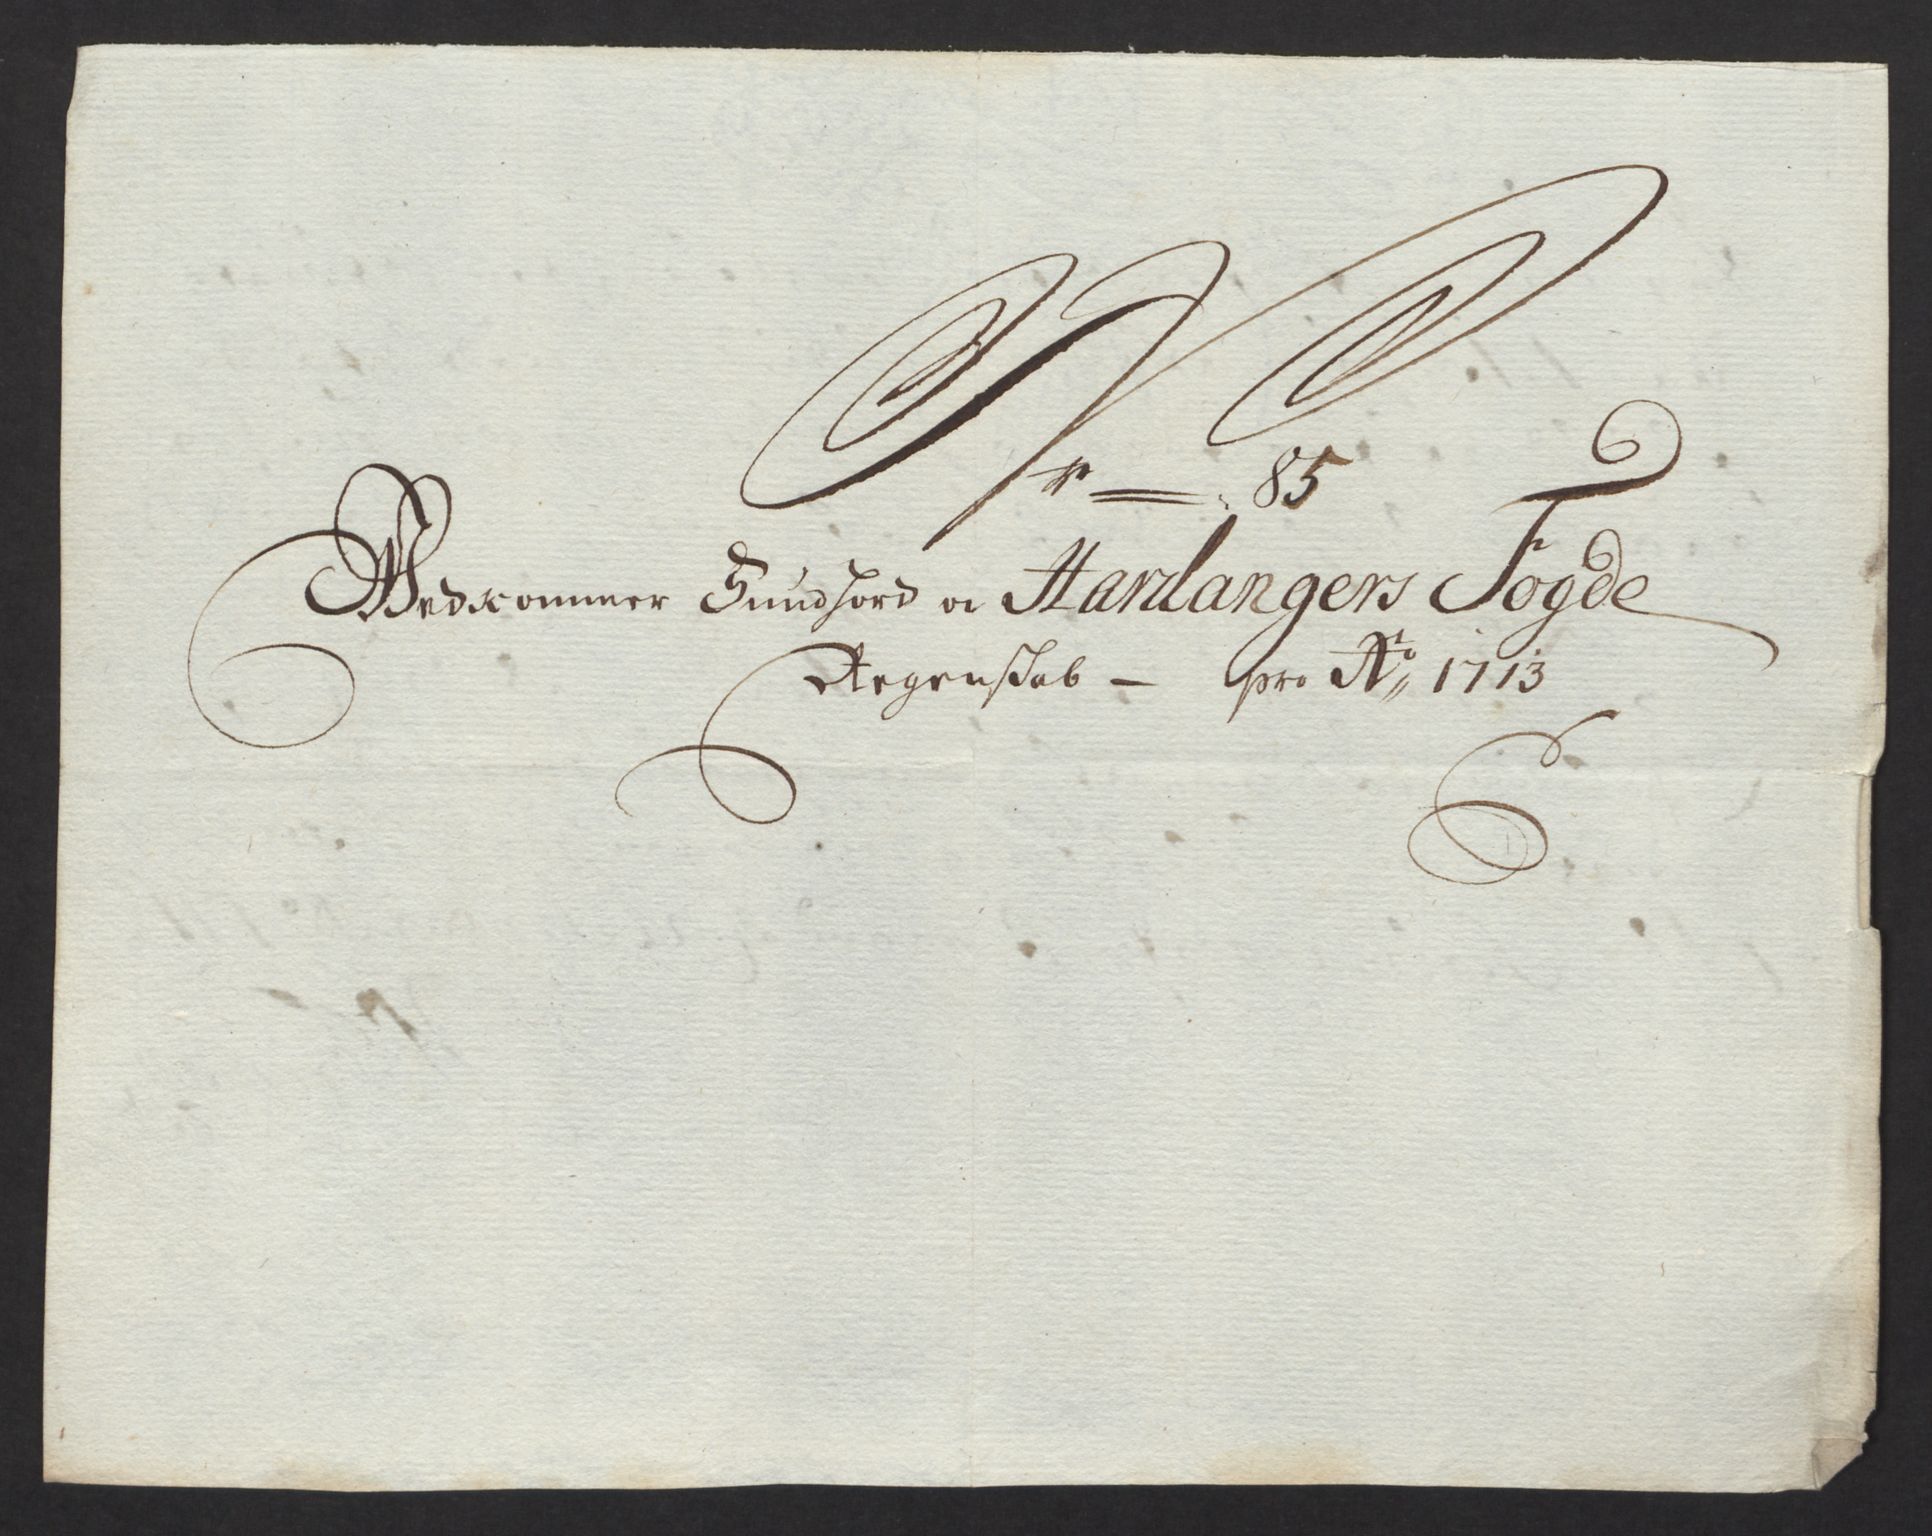 Nr = 85
Vedkommer Sundhord oc Hardangers Fogde
Regenskab – pro Ao 1713